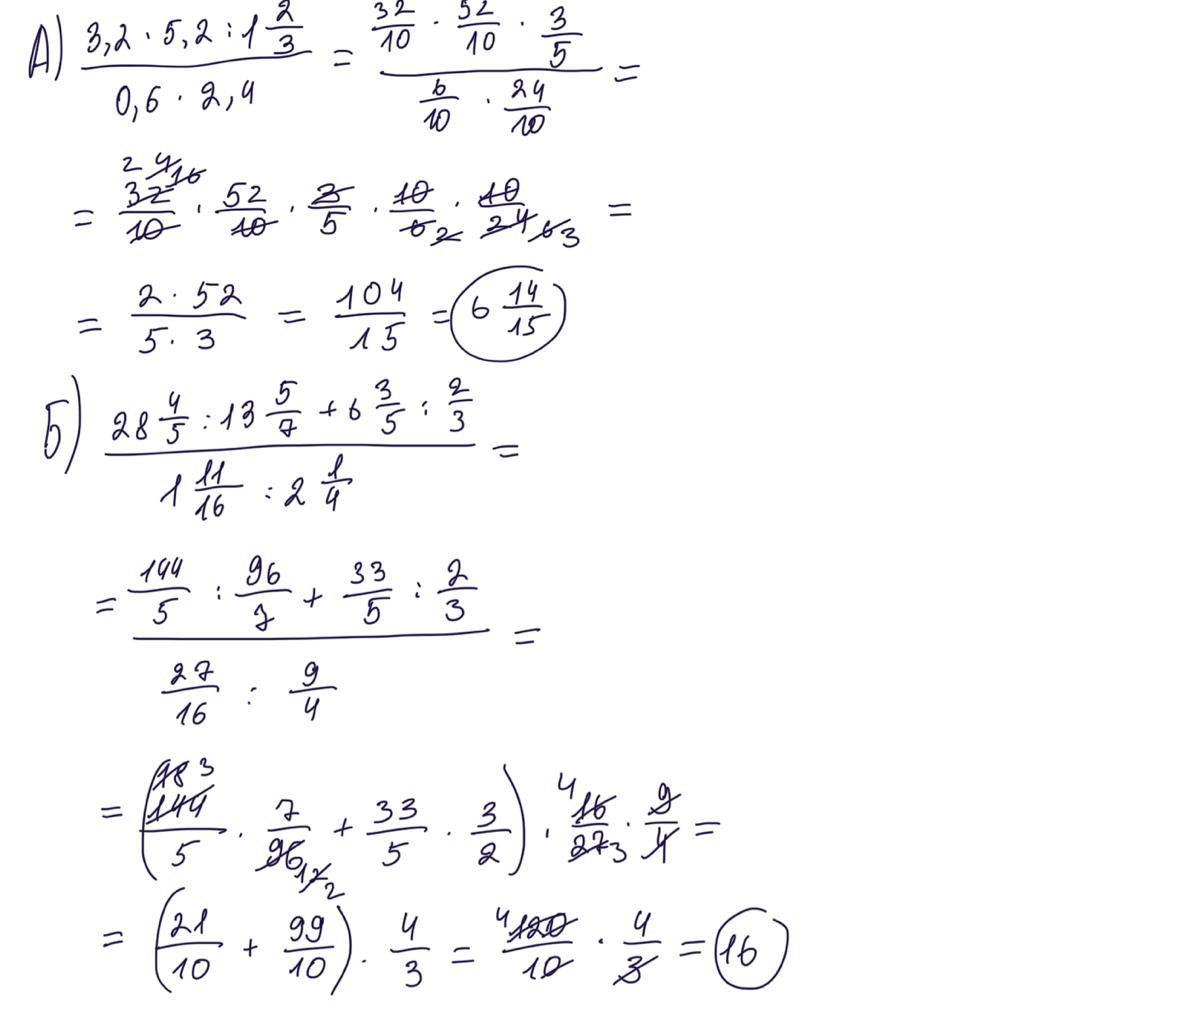 А) (3,2 · 5,2 : 1 2/3) / (0,6 · 2,4) = (32/10 · 52/10 · 3/5) / (6/10 · 24/10) =
2 4 16
= 32/10 · 52/10 · 3/5 · 10/6 2 · 10/24 6 3 =
= (2 · 52) / (5 · 3) = 104/15 = 6 14/15
Б) (28 4/5 : 13 5/7 + 6 3/5 : 2/3) / (1 11/16 : 2 1/4) =
= (144/5 : 96/7 + 33/5 : 2/3) / (27/16 : 9/4) =
= (144/5 · 7/96 12 2 + 33/5 · 3/2) · 4 16/27 3 · 9/4 =
= (21/10 + 99/10) · 4/3 = 4 120/10 · 4/3 = 16